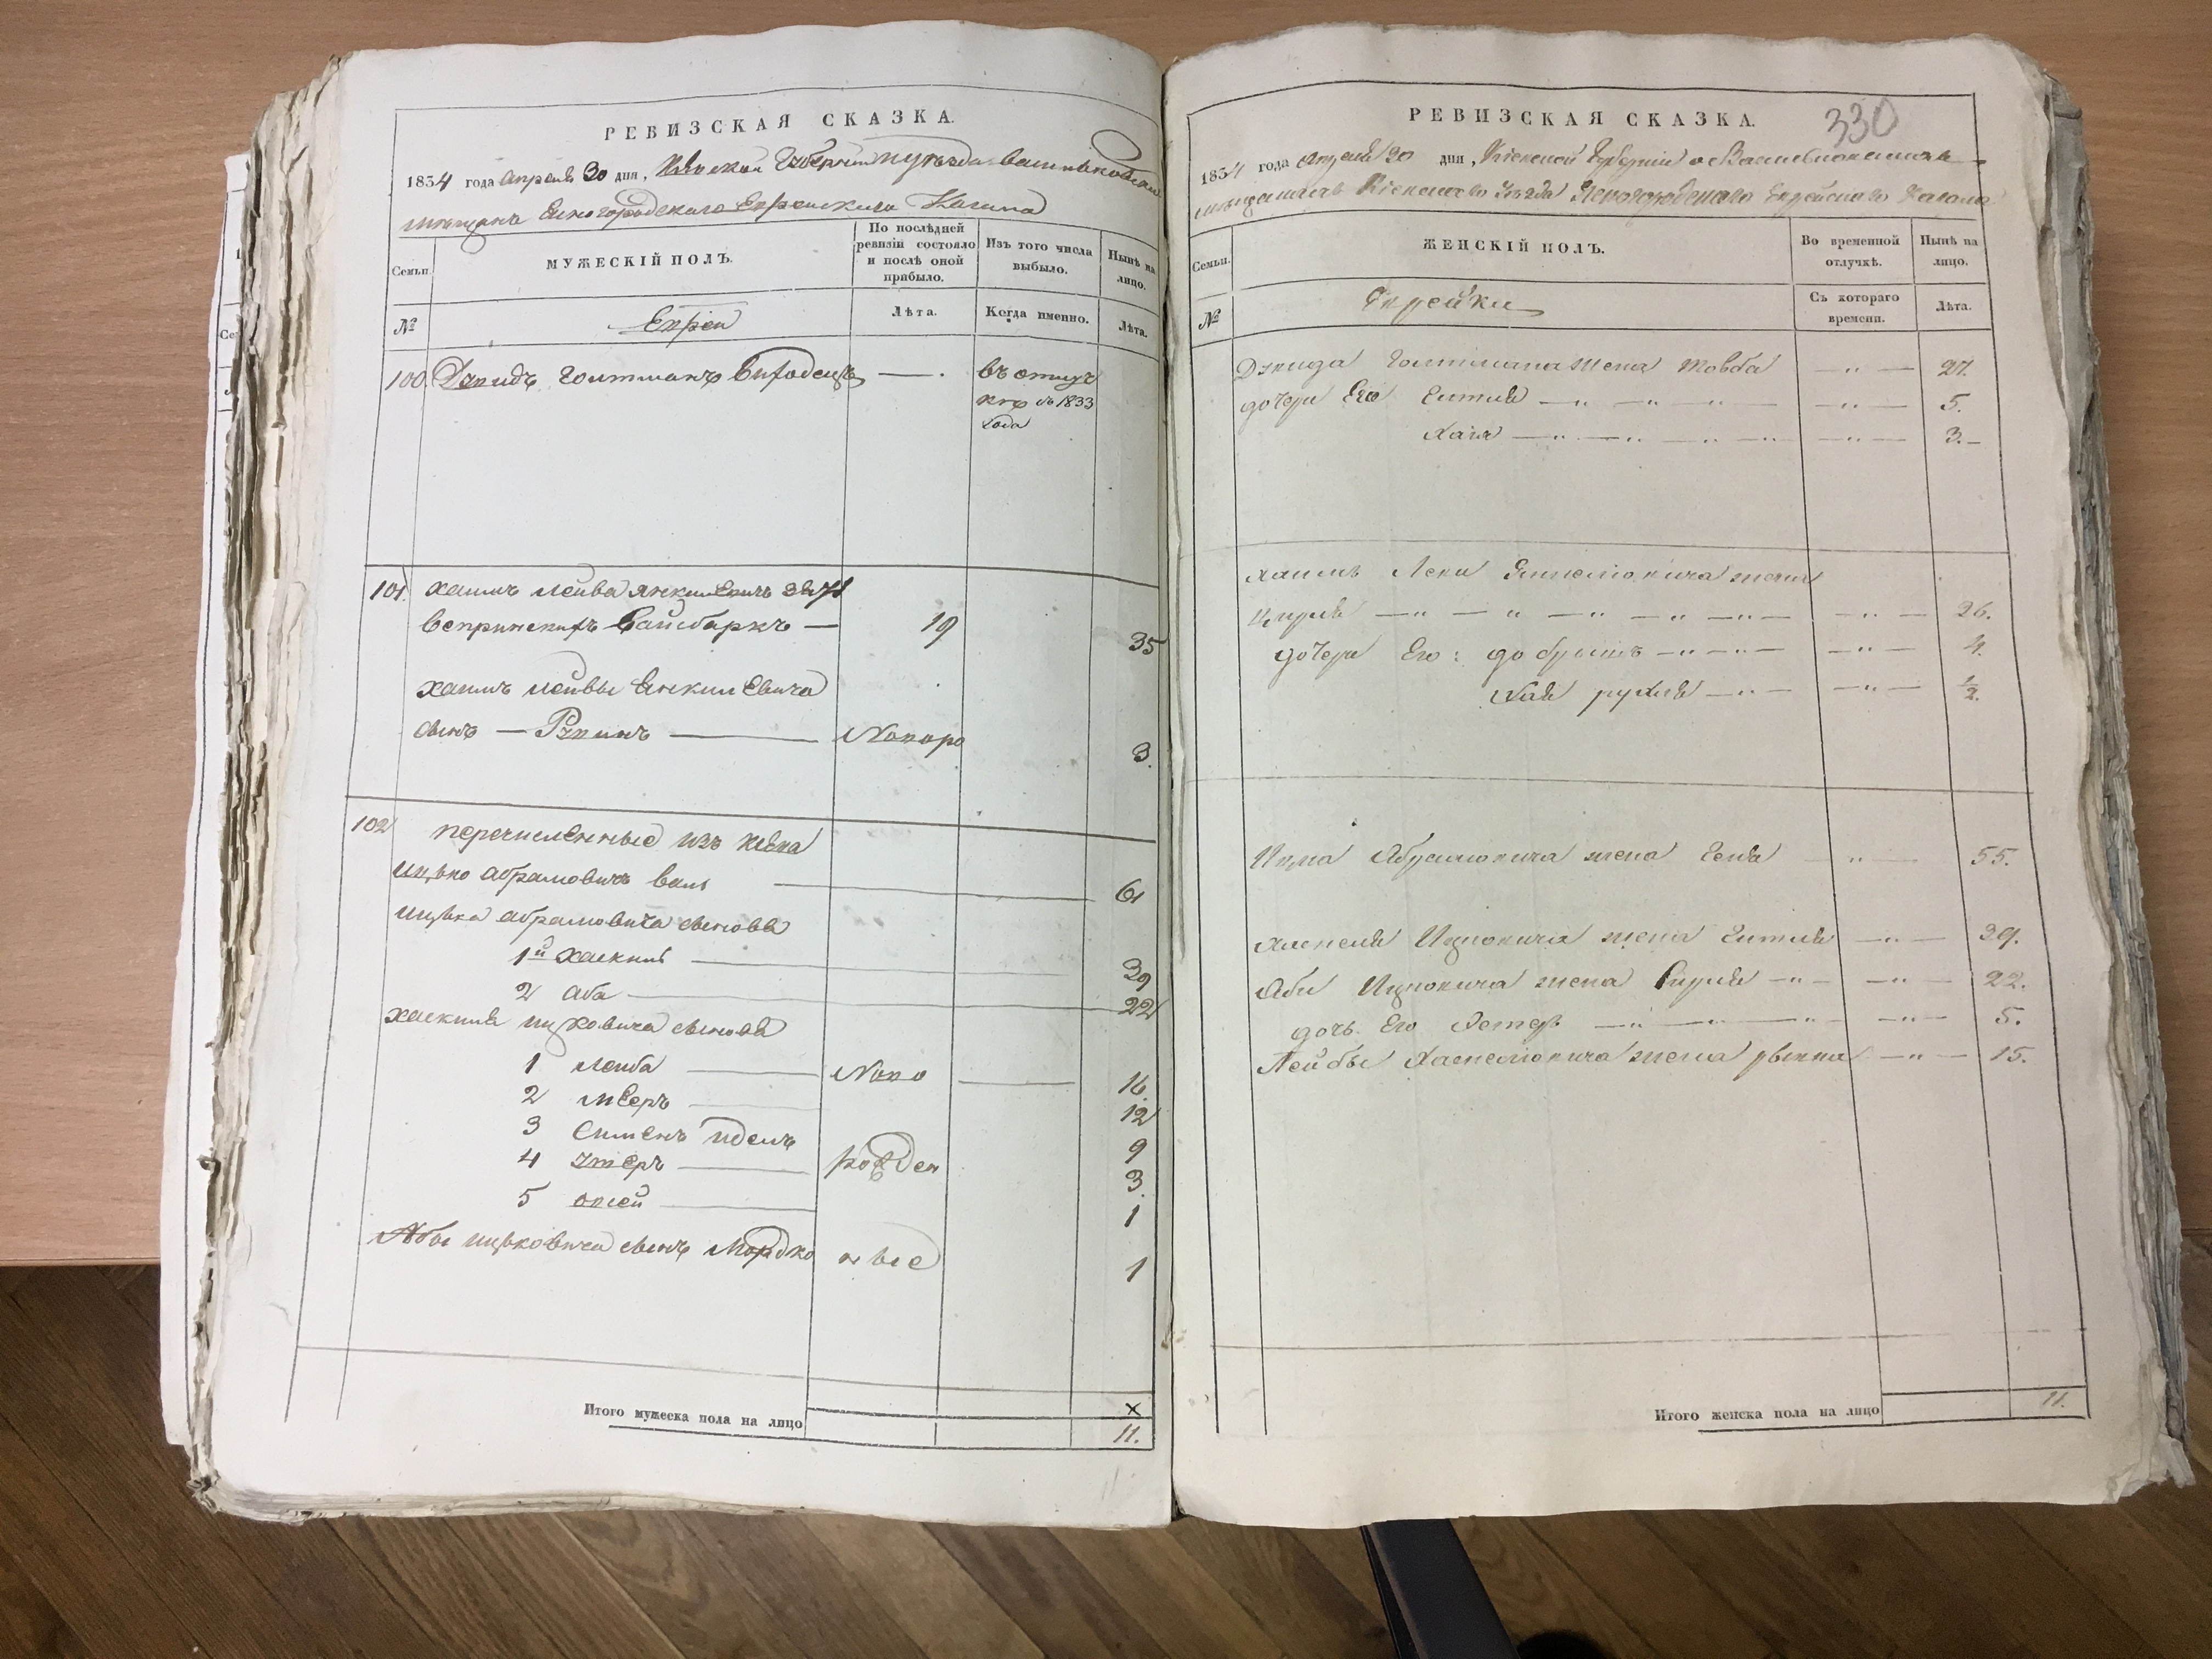 РЕВИЗСКАЯ СКАЗКА.
1834 года апреля 30 дня, Киевской Губернии уезда Васильковских
мещанъ Еврейскаго Кагала
Семьи.
МУЖЕСКІЙ ПОЛЪ.
По послѣдней ревизіи состояло и послѣ оной прибыло.
Изъ того числа выбыло.
Нынѣ на лицо.
№
Евреи
Лѣта.
Когда именно.
Лѣта.
100 Давидъ Гольтманъ — въ отлуч
кѣ съ 1833
года
101 Хаимъ Лейба Янкилевичъ
Байсбаркъ — 19 35
Хаимъ Лейбы Енкилевича
сынъ — Рувинъ — Новоро 3.
102 перечисленные изъ Киева
Ицько Абрамовичъ — 61
Ицька Абрамовича сыновья
1й Хаскиль — 39
2 Аба — 22
Хаскиля Ицковича сыновья
1 Лейба — Ново — 16.
2 Мееръ — 12
3 9
4 — рожден 3.
5 — 1
Абы Ицьковича сынъ Мордко ные 1
Итого мужеска пола на лицо
x
11.
330
РЕВИЗСКАЯ СКАЗКА.
1834 года апреля 30 дня, Кіевской Губерніи о Васильковскихъ
мещанахъ Кіевскаго Уезда Еврейскаго Кагала
Семьи.
ЖЕНСКІЙ ПОЛЪ.
Во временной отлучкѣ.
Нынѣ на лицо.
№
Еврейки
Съ котораго времени.
Лѣта.
Давида Гольтмана жена Товба — " — 27.
дочери Его Ентля — " — 5.
Хая — " — 3.–
Хаимъ Лейбы жена
— " — 26.
дочери Его: Добрышъ — " — 4.
Хая Рухля — " — ½.
Ицка Абрамовича жена — " — 55.
Хаскеля Ицковича жена Ентля — " — 39.
Абы Ицковича жена — " — 22.
дочь Его Эстеръ — " — 5.
Лейбы Хаскелiовича жена Рывка — " — 15.
Итого женска пола на лицо
11.